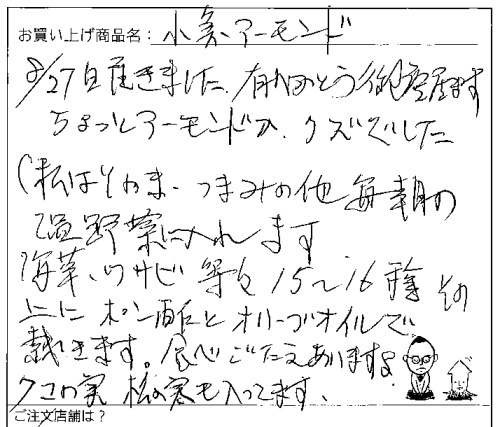 お買い上げ商品名： 小魚アーモンド
8/27日届きました 有りがとう御座居ます
ちょっとアーモンドが、クズぽでした
(私はそのま、つまみの他 毎朝の
温野菜に入れます
海草、ワサビ 等々 15〜16種 その
上に ポン酢と オリーブオイルで
戴きます。食べごたえありますよ
クコの実 松の実も入ってます、
ご注文店舗は？